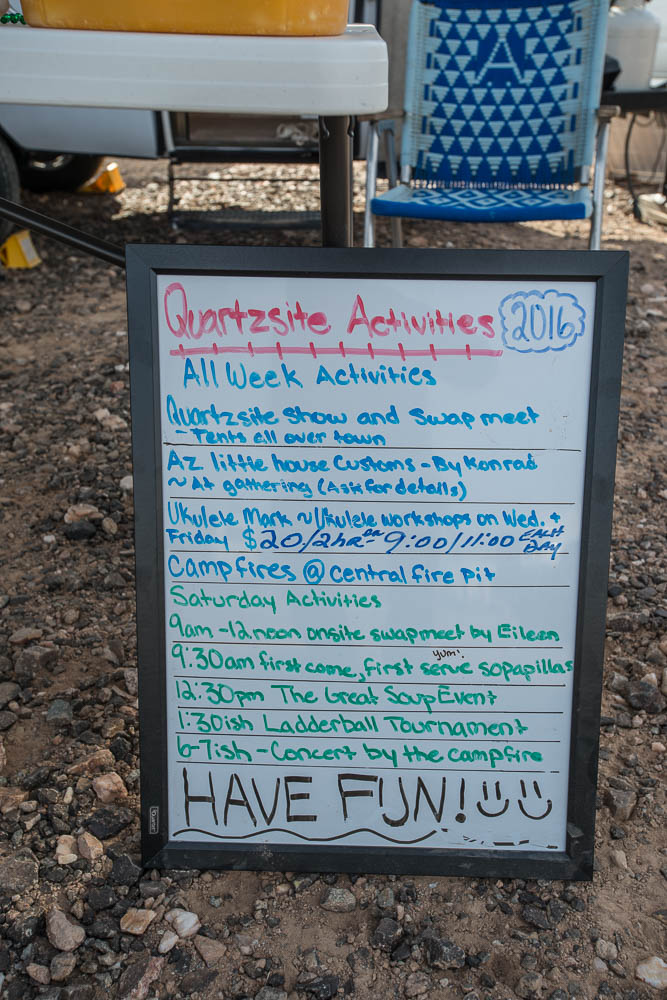 A
Quartzsite Activities 2016
All Week Activities
Quartzsite Show and Swap meet
- Tents all over town
Az little house Customs - By Konrad
~ At gathering (Ask for details)
Ukulele Mark ~ Ukulele workshops on Wed. +
Friday $20/2hr 9:00/11:00 EACH DAY
Campfires @ Central fire Pit
Saturday Activities
9am -12noon onsite swapmeet by Eileen
yum!
9:30am first come, first serve sopapillas
12:30pm The Great Soup Event
1:30ish Ladderball Tournament
6-7ish - Concert by the campfire
HAVE FUN!